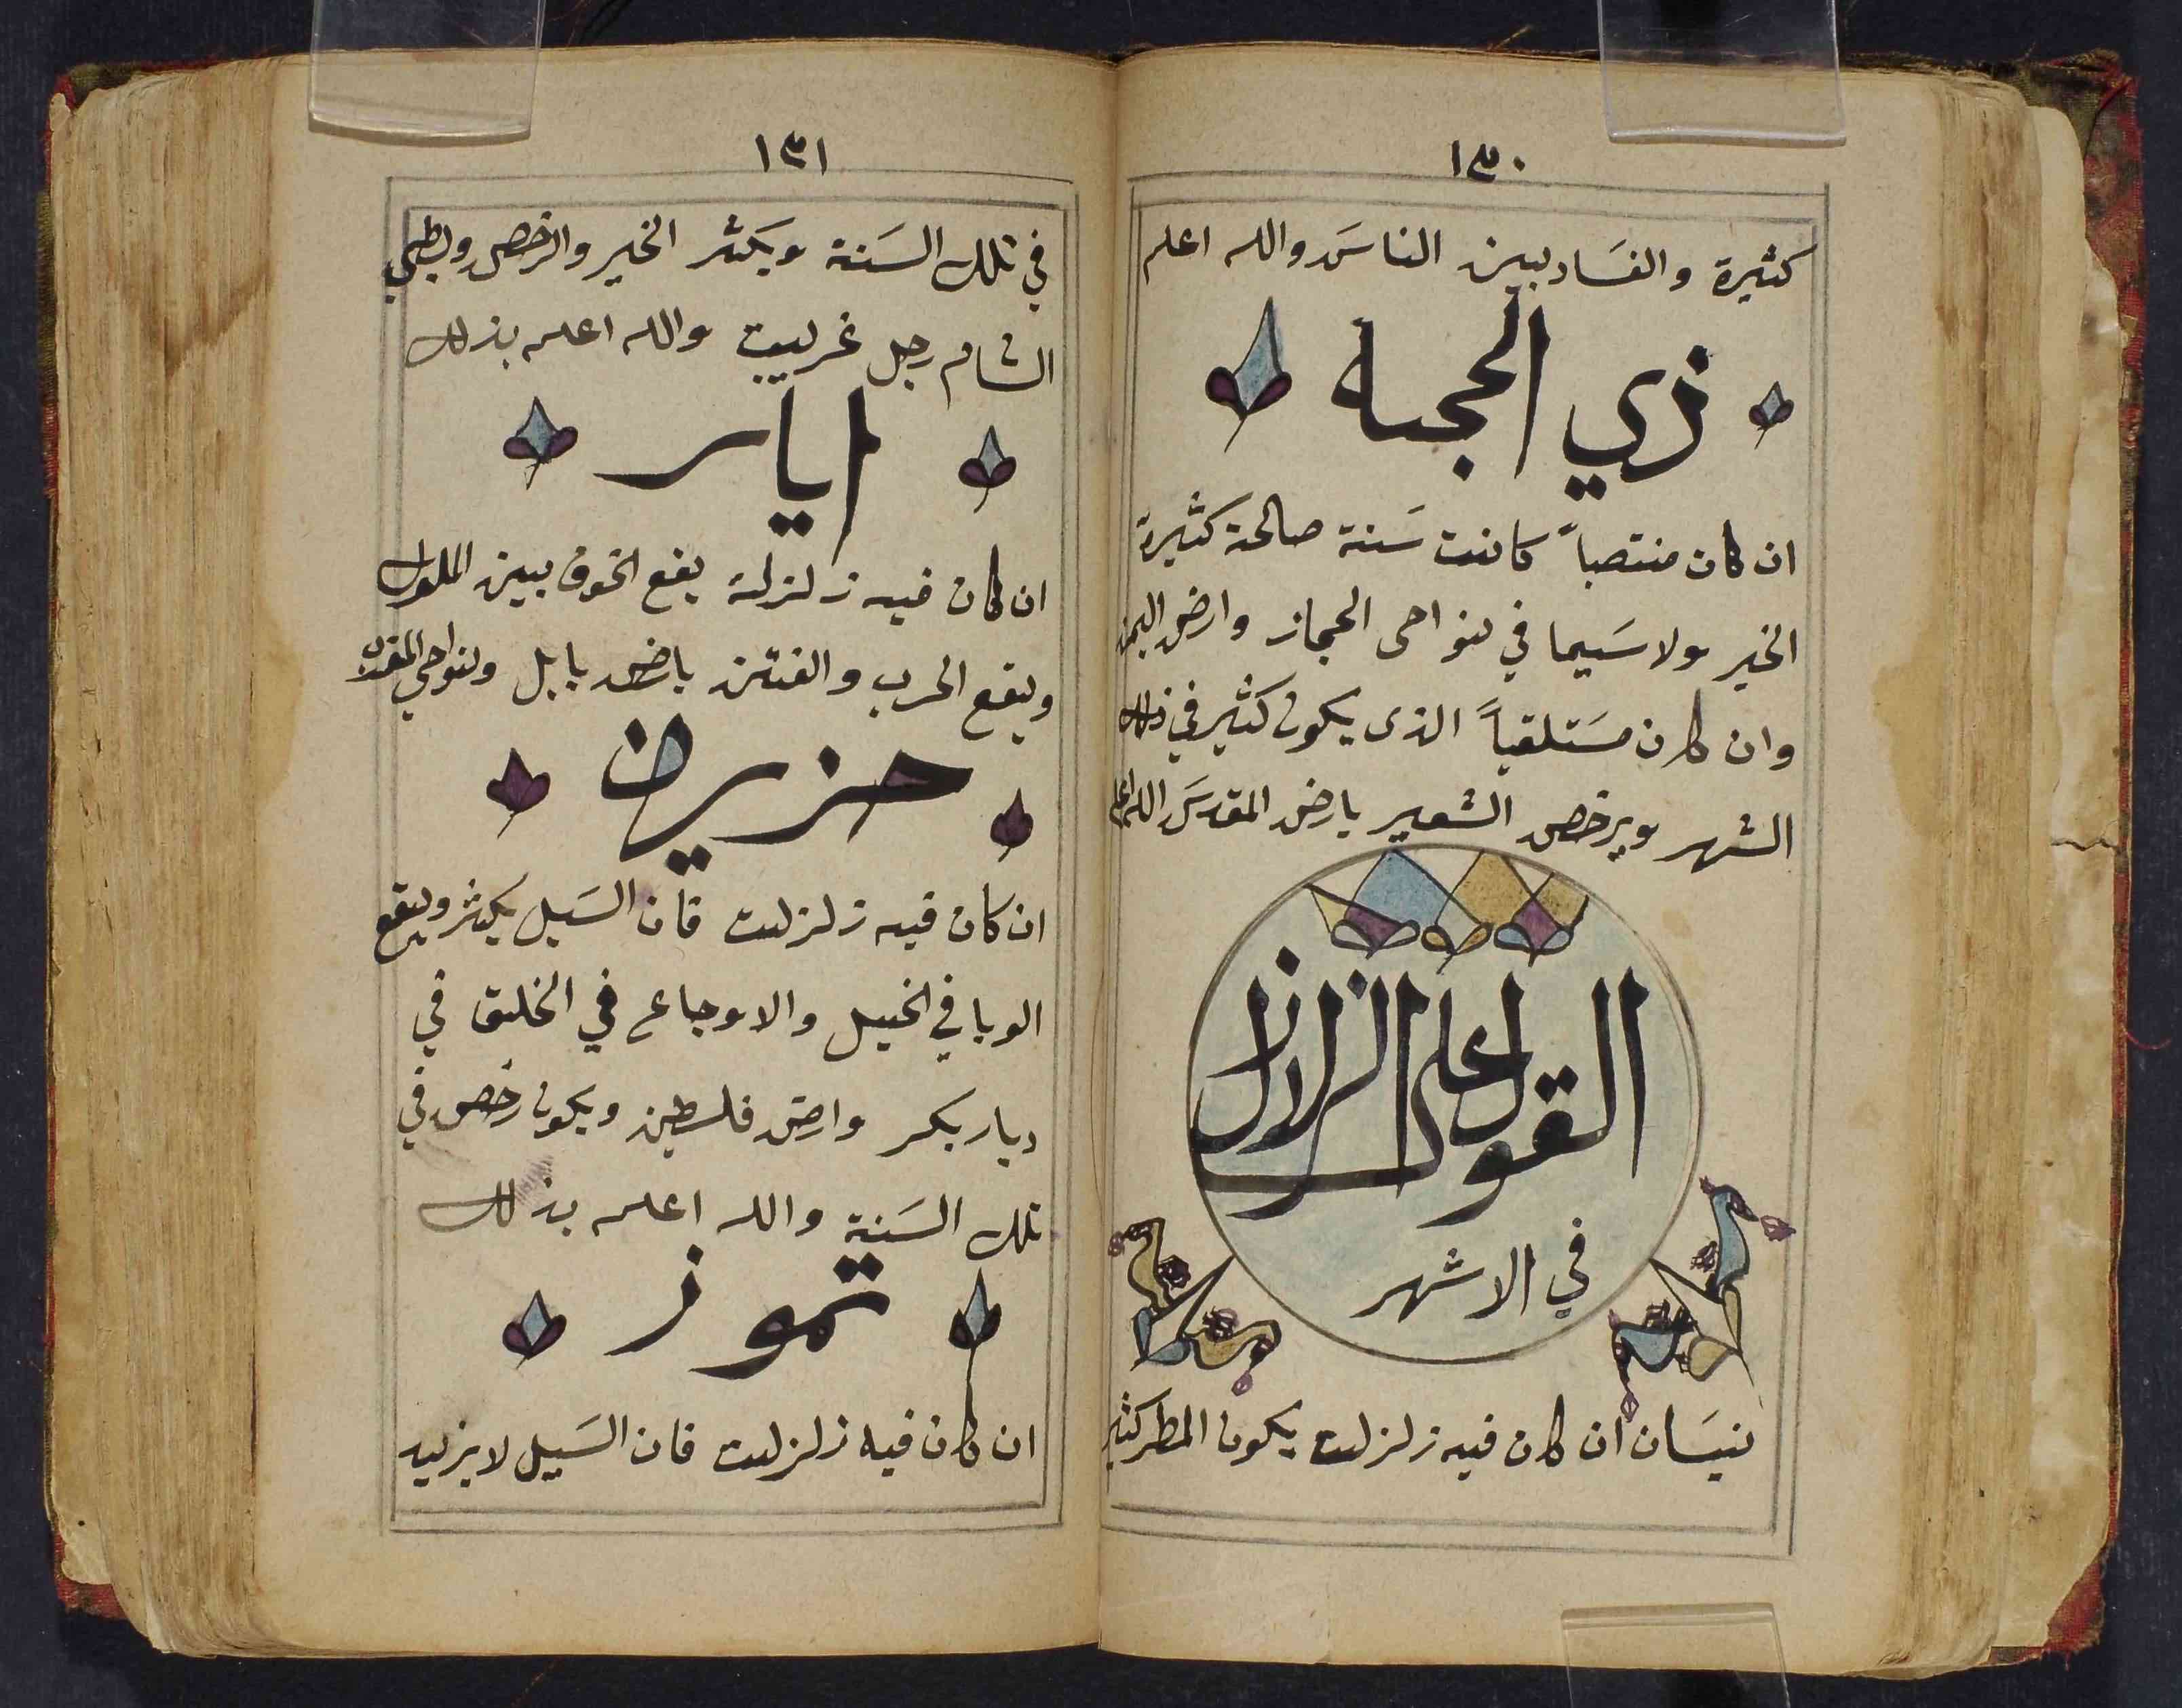 ١٣٠
كثيرة والفساد بين الناس والله اعلم
ذي الحجه
ان كان منتصباً كانت سنة صالحة كثيرة
الخير ولا سيما في نواحى الحجاز وارض اليمن
وان كان مستلقياً الذى يكون كثير في ذلك
الشهر ويرخص الشعير بارض المقدس الله اعلم
القول على الزلازل
في الاشهر
نيسان ان كان فيه زلزلت يكون المطر كثير
١٣١
في تلك السنة ويكثر الخير والرخص
الشام رجل غريب والله اعلم بذلك
ايار
ان كان فيه زلزلة يقع الخوف بين الملوك
ويقع الحرب والفتن بارض بابل ونواحي
حزيران
ان كان فيه زلزلت فان السيل يكثر ويقع
الوبا في الخيل والاوجاع في الخلق في
ديار بكر وارض فلسطين ويكون رخص في
تلك السنة والله اعلم بذلك
تموز
ان كان فيه زلزلت فان السيل لا يزيد